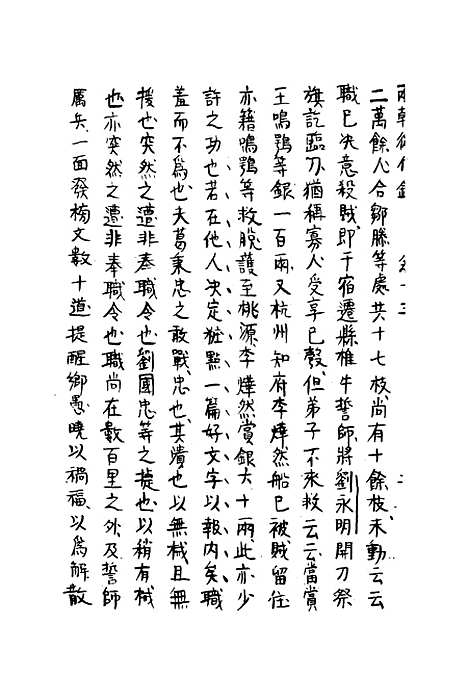 兩朝從信錄
二萬餘人合鄒滕等處共十七枝尚有十餘枝未動云云
職已決意殺賊即于宿遷縣椎牛誓師將劉永明開刀祭
旗訖臨刀猶稱寡人受享已彀但弟子不來救云云當賞
王鳴鶚等銀一百兩又杭州知府李燁然船已被賊留住
亦籍鳴鶚等救脫護至桃源李燁然賞銀六十兩此亦少
許之功也若在他人決定粧點一篇好文字以報內矣職
羞而不爲也夫葛秉忠之敢戰忠也其潰也以無械且無
援也突然之遭非奉職令也劉國忠等之捷也以稍有械
也亦突然之遭非奉職令也職尚在數百里之外及誓師
厲兵一面發檄文數十道提醒鄉愚曉以禍福以爲解散